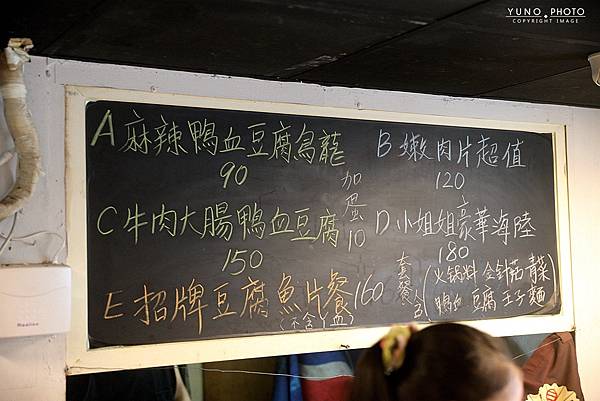 YUNO PHOTO
COPYRIGHT IMAGE
A 麻辣鴨血豆腐烏龍
90
B 嫩肉片超值
120
加蛋10
C 牛肉大腸鴨血豆腐
150
D 小姐姐豪華海陸
180
E 招牌豆腐魚片餐 160
(不含鴨血)
套餐含
(火锅料 金針菇 青菜
鴨血 豆腐 王子麵